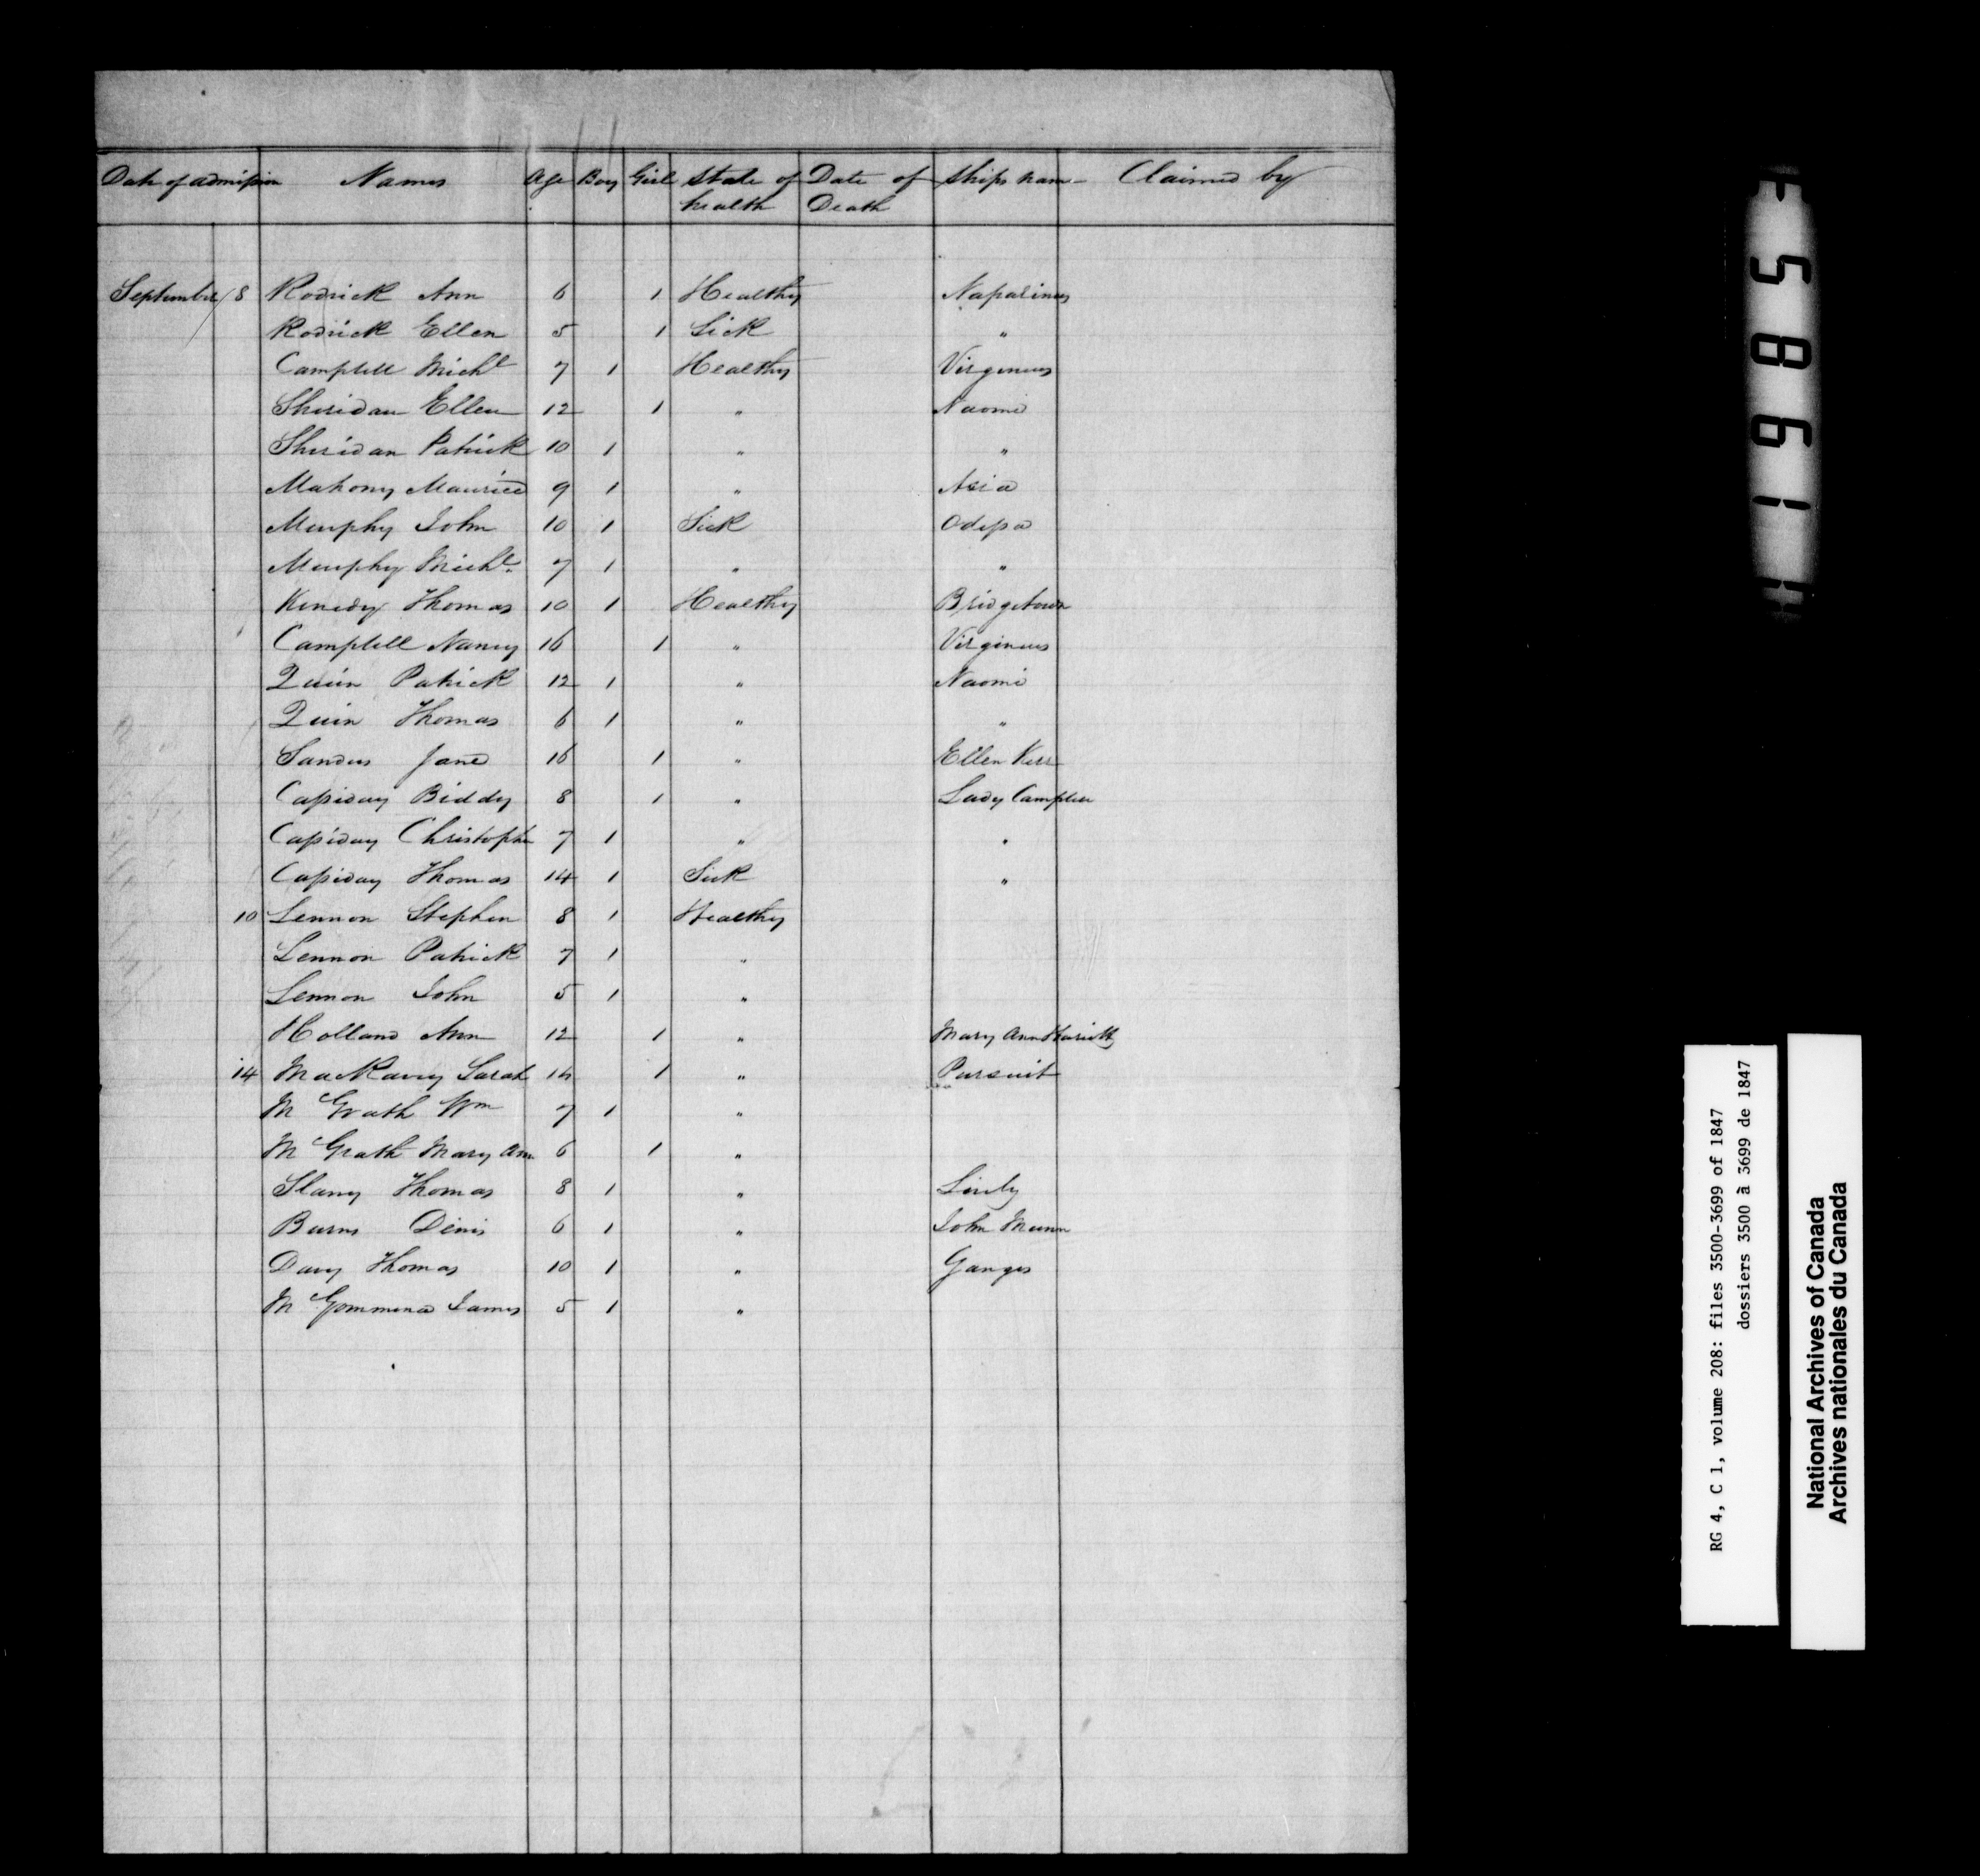 Date of admission Names Age Boy Girl State of health Date of Death Ships nam Claimed by
September 8 Rodrick Ann 6 1 Healthy Naparimas
Rodrick Ellen 5 1 Sick "
Campbell Michl 7 1 Healthy Virginius
Sheridan Ellen 12 1 " Naomi
Sheridan Patrick 10 1 " "
Mahony Maurice 9 1 " Asia
Murphy John 10 1 Sick Odessa
Murphy Michl. 7 1 " "
Kenedy Thomas 10 1 Healthy Bridgetown
Campbell Nancy 16 1 " Virginius
Quin Patrick 12 1 " Naomi
Quin Thomas 6 1 " "
Sandus Jane 16 1 " Ellen Kerr
Cassiday Biddy 8 1 " Lady Campbell
Cassiday Christopher 7 1 " "
Cassiday Thomas 14 1 Sick "
10 Lennon Stephen 8 1 Healthy
Lennon Patrick 7 1 "
Lennon John 5 1 "
Holland Ann 12 1 " Mary Ann Hariott
14 MacKavey Sarah 14 1 " Pursuit
Mc Grath Wm 7 1 "
Mc Grath Mary Ann 6 1 "
Slany Thomas 8 1 "
Burns Denis 6 1 " John Munn
Davy Thomas 10 1 " Ganges
Mc Gommena James 5 1 "
5861
RG 4, C 1, volume 208: files 3500-3699 of 1847
dossiers 3500 à 3699 de 1847
National Archives of Canada
Archives nationales du Canada